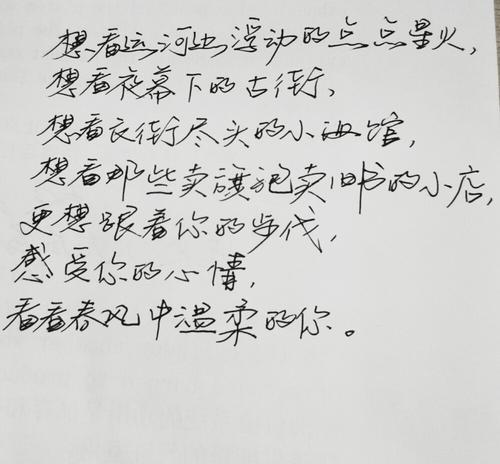 想看运河浮动的点点星火，
想看夜幕下的古街，
想看长街尽头的小酒馆，
想看那些卖旗袍卖旧书的小店，
更想跟着你的步伐，
感受你的心情，
看看春风中温柔的你。